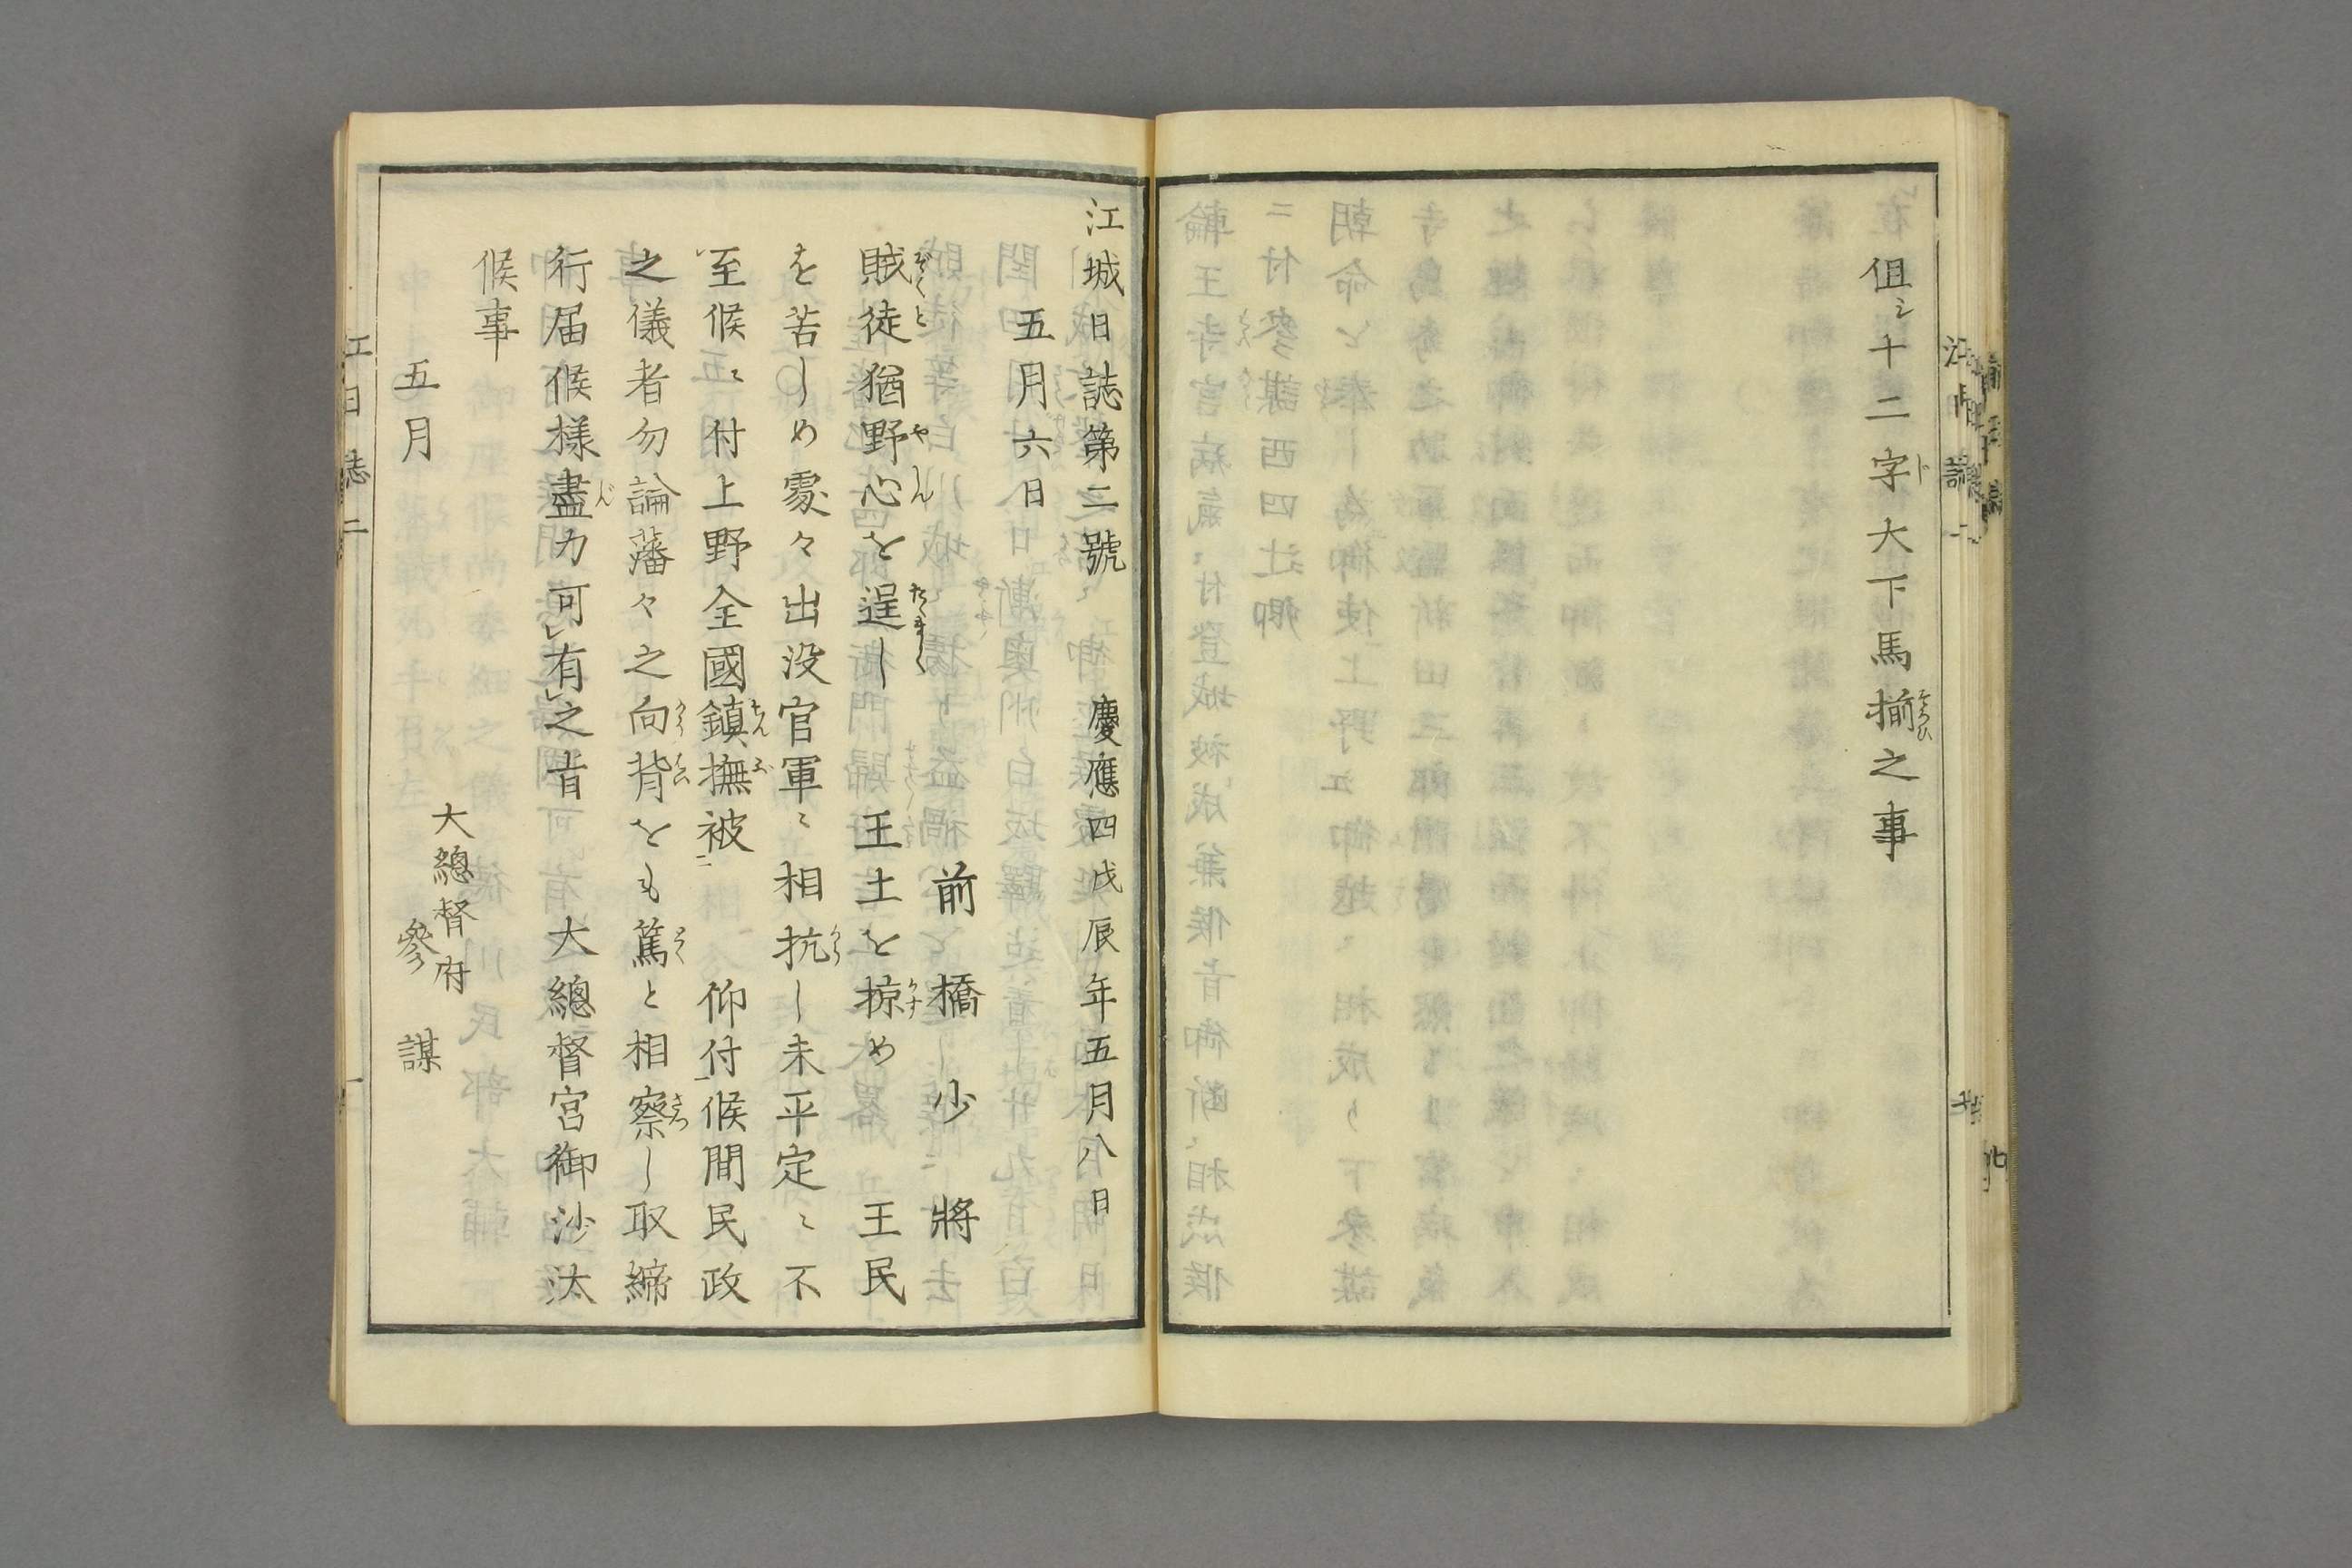 但シ十二字大下馬揃之事
江城日誌第二號 慶應四戊辰年五月八日
五月六日
前橋少將
賊徒猶野心を逞し 王土を掠め 王民
を苦しめ處々出没官軍ニ相抗し未平定ニ不
至候ニ付上野全國鎮撫被 仰付候間民政
之儀者勿論藩々之向背をも篤と相察し取締
行届候様盡力可有之旨 大總督宮御沙汰
候事
大總督府
五月 參謀
江日誌二